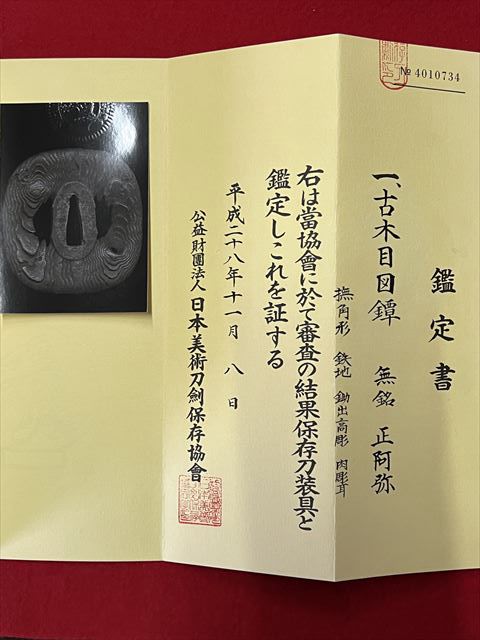 № 4010734
鑑定書
一、古木目図鐔 無銘 正阿弥
撫角形 鉄地 鋤出高彫 肉彫耳
右は當協會に於て審査の結果保存刀装具と
鑑定しこれを証する
平成二十八年十一月 八 日
公益財團法人 日本美術刀劍保存協會